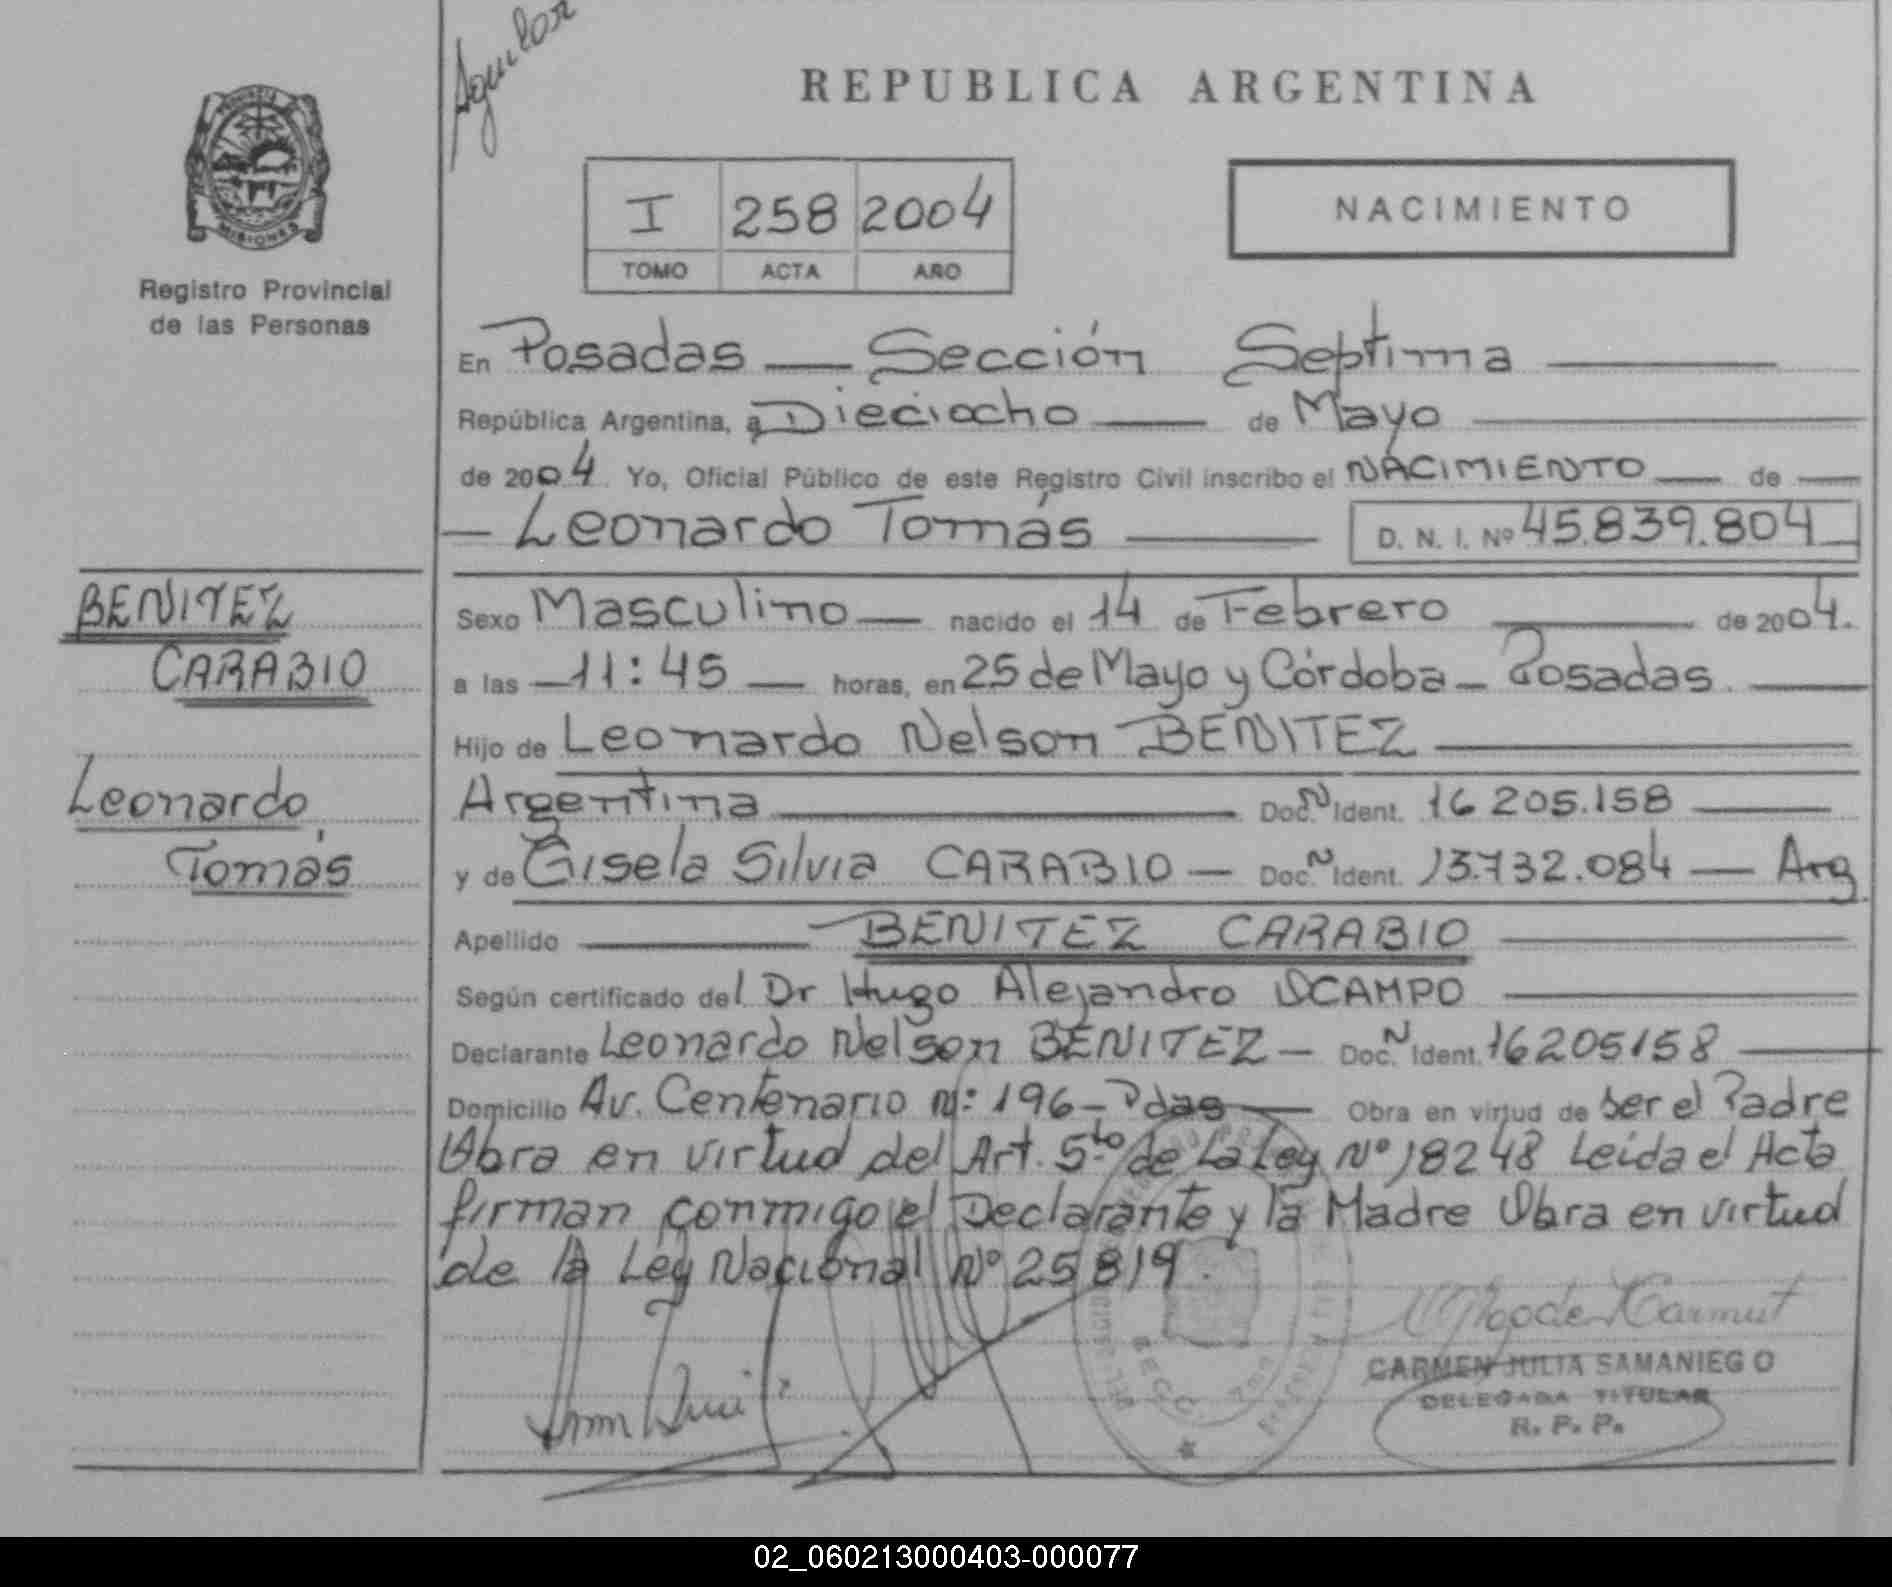 Aguilar
REPUBLICA ARGENTINA
I 258 2004
TOMO ACTA AÑO
NACIMIENTO
PROVINCIA
MISIONES
Registro Provincial
de las Personas
En Posadas — Sección Septima
República Argentina, a Dieciocho — de Mayo
de 2004 Yo, Oficial Público de este Registro Civil inscribo el NACIMIENTO — de —
— Leonardo Tomás — D. N. I. Nº 45.839.804
BENITEZ
CARABIO
Leonardo
Tomás
Sexo Masculino — nacido el 14 de Febrero — de 2004.
a las — 11:45 — horas, en 25 de Mayo y Córdoba – Posadas. —
Hijo de Leonardo Nelson BENITEZ —
Argentina — Doc. N Ident. 16.205.158 —
y de Gisela Silvia CARABIO — Doc. N Ident. 13.732.084 — Arg
Apellido — BENITEZ CARABIO —
Según certificado del Dr Hugo Alejandro OCAMPO —
Declarante Leonardo Nelson BENITEZ — Doc. N Ident. 16205158 —
Domicilio Av. Centenario Nº: 196 – Pdas — Obra en virtud de ser el Padre
Obra en virtud del Art. 5to de La Ley Nº 18248 Leída el Acta
firman conmigo el Declarante y la Madre Obra en virtud
de la Ley Nacional Nº 25819.
CARMEN JULIA SAMANIEGO
DELEGADA TITULAR
R. P. P.
02_060213000403-000077